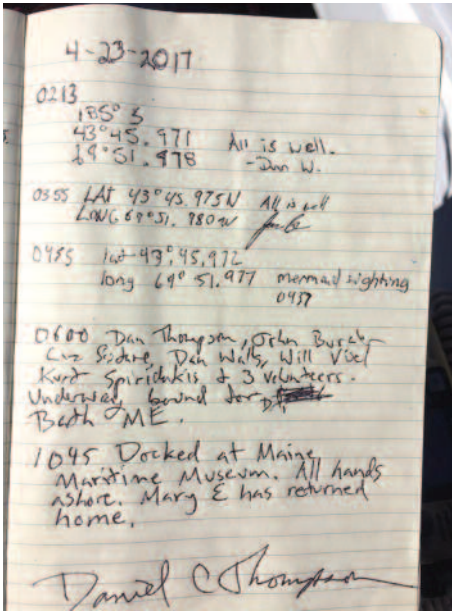 4-23-2017
0213
185° S
43°45.971
69°51.978
All is well.
-Dan W.
0355 LAT 43°45.975N All is well
LONG 69°51.980W
0455 lat 43°45.972
long 69° 51.977 mermaid sighting
0437
0600 Dan Thompson, John
Dan Wells, Will
Kurt Spiridakis & 3 volunteers.
Underway, bound for
Bath ME.
1045 Docked at Maine
Maritime Museum. All hands
ashore. Mary E has returned
home.
Daniel C Thompson